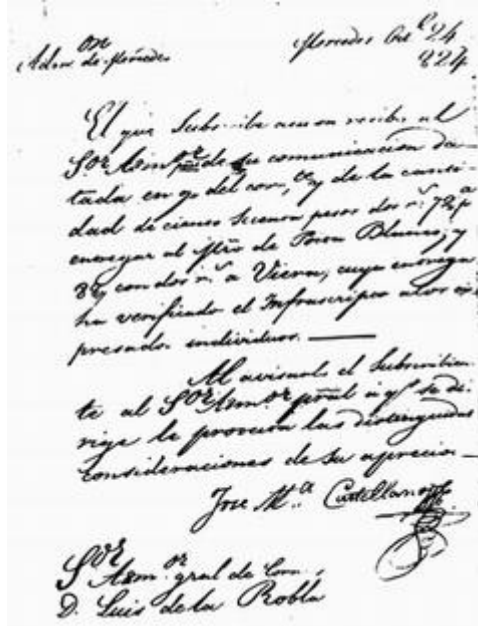 Adm.on de Mercedes
Mercedes Oct.e 24
824
El que Subscribe acusa recibo al
S.or Adm.or de su comunicacion da-
tada en 9 del cor.te, y de la canti-
dad de ciento pesos dos r.s
entregar al de Blanes, y
con dos r.s a Viera, cuya entrega
ha verificado el Infrascripto alos es-
presados individuos.
Al avisarle el Subscribien-
te al S.or Adm.or pral a q.n se di-
rige le las distinguidas
consideraciones de su aprecio
Jose M.a Castellanos
S.or
Adm.or gral de Corr.s
D. Luis de la Robla